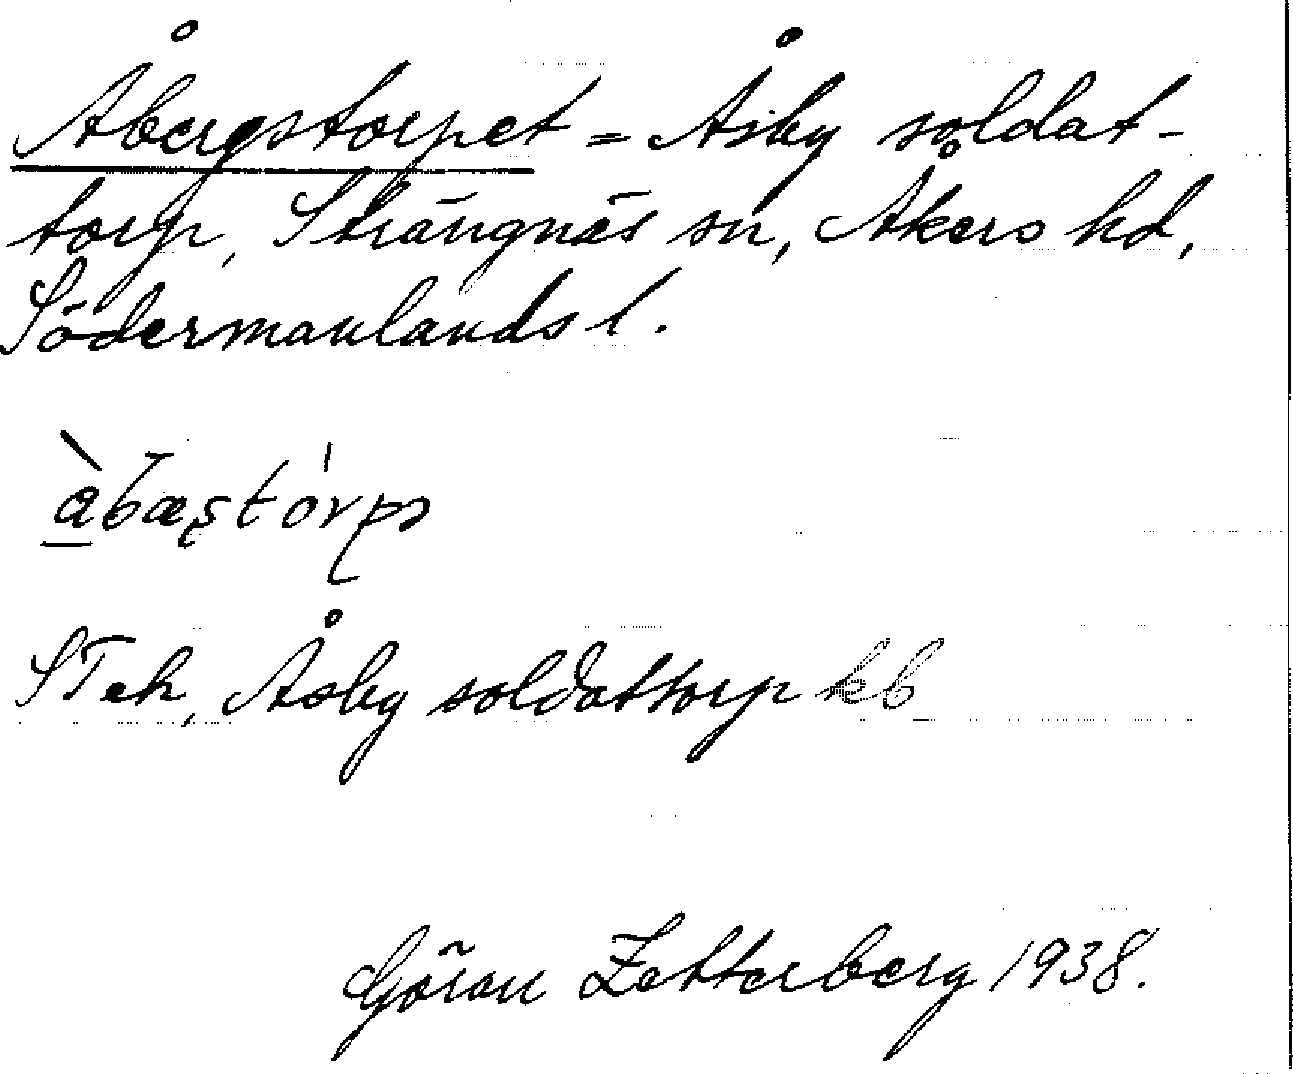 Åbergstorpet = Åsby soldat-
torp, Strängnäs sn, Åkers hd,
Södermanlands l.
Åsby soldattorp kb
Göran Zetterberg 1938.